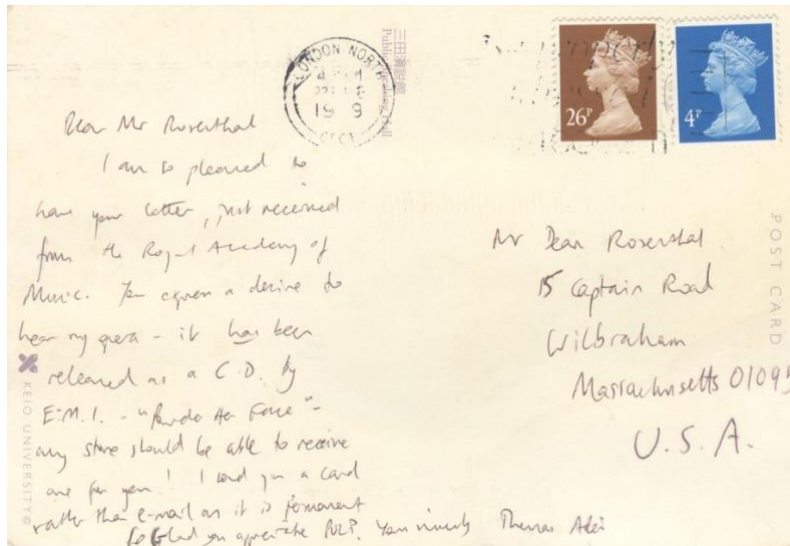 LONDON NORTH
19 9
三田演説館
Public Speaking Hall
26P
4P
Dear Mr Rosenthal
I am so pleased to
have your letter, just received
from the Royal Academy of
Music. You express a desire to
hear my opera - it has been
released as a C.D. by
E.M.I. - "Powder Her Face" -
any store should be able to receive
one for you! I send you a card
rather than e-mail as it is permanent
So Glad you appreciate
Yours sincerely Thomas Adès
Mr Dean Rosenthal
15 Captain Road
Wilbraham
Massachusetts 01095
U.S.A.
POST CARD
KEIO UNIVERSITY©